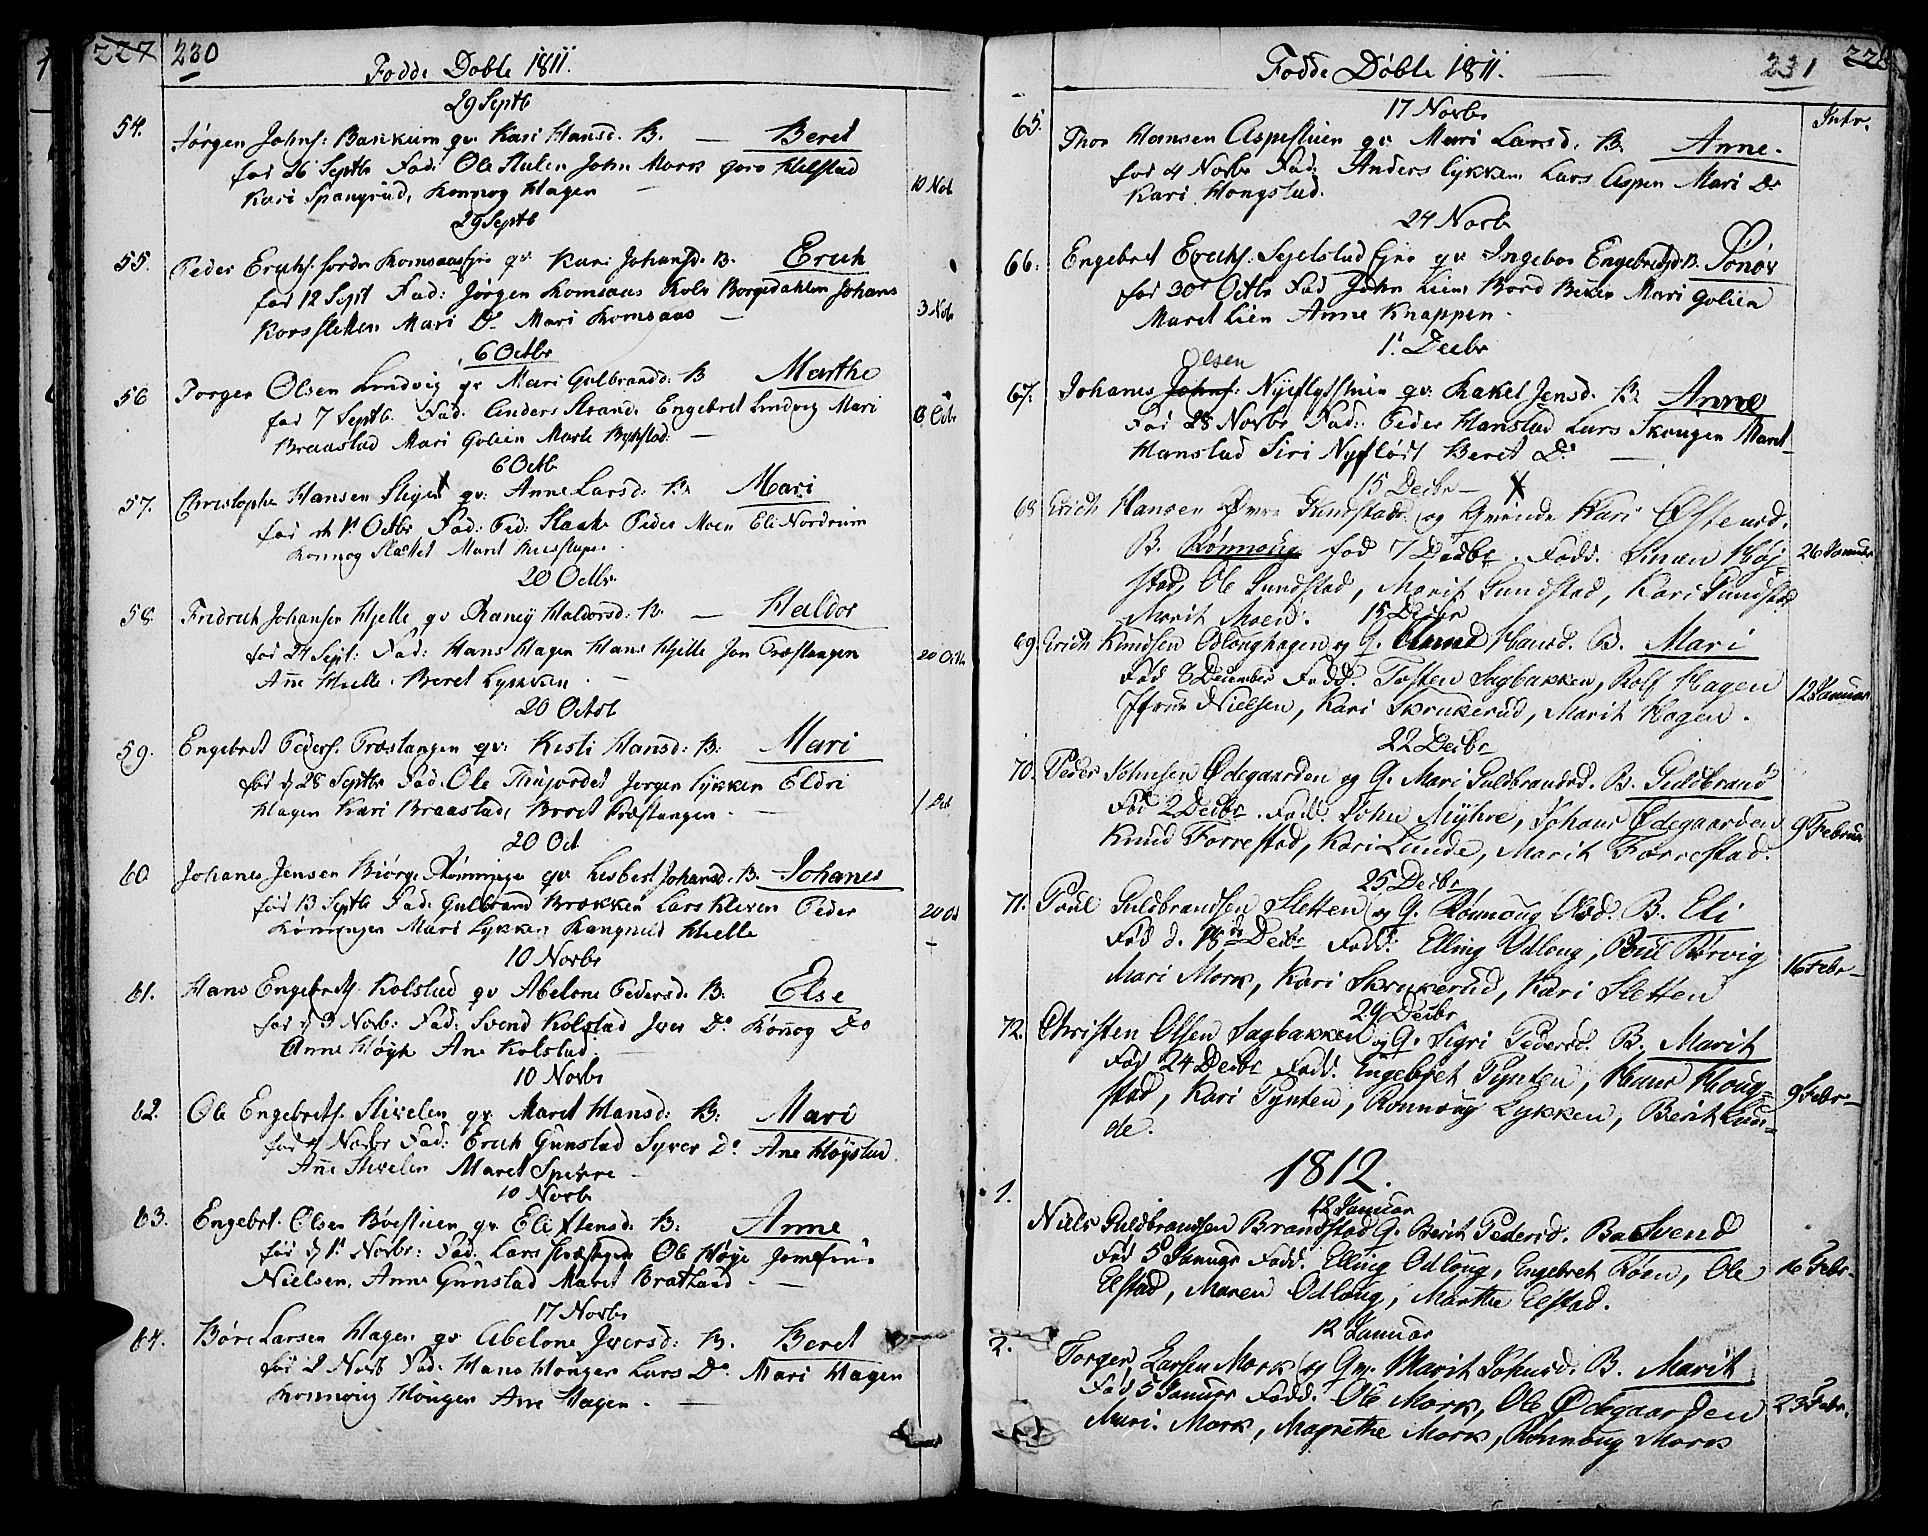 227 230
Fødde Døbte 1811.
29 Septb
54. Jørgen Johns: Bankum qv. Kari Hansd. B. — Beret
fød 26 Septbr Fad: Ole Stulen John Mork Goro Kilstad
Kari Spangrud, Konnog Hagen — 10 Nob
29 Septb
55. Peder Erichs. Romsaas qv Kari Johansd. B. Erich
fød 12 Sept Fad: Jørgen Romsaas Kolv Borgedahlen Johans
Korssletten Mari Do Mari Romsaas — 3 Nob
6 Octbr
56 Jorgen Olsen Lindvig qv Mari Gulbrandsd: B Marthe
fød 7 Septb. Fad: Anders Strand Engebret Lindvig Mari 13 Octbr
Braastad Mari Golien Marte —
6 Octb
57. Christophe Hansen Stigen qv: Anne Larsd: B: Mari
fød 1t Octbr Fad: Ped: Staake Peder Moen Eli Nordrum
Konnog Slettet Maret
20 Octbr
58. Fredrich Johansen Hjelle qv Raney Haldorsd: B: — Haldor
fød 24 Sept: Fad: Hans Hagen Hans Hjelle Jon Præstangen 20 Octb
Ane Hielle. Beret Lykken. —
20 Octob
59. Engebret Peders. Præstangen qv: Kisti Hansd: B: Mari
fød d 28 Septbr Fad: Ole Thujordet Jorgen Lykken Eldri
Hagen Kari Braastad, Beret Præstangen. —
20 Oct
60. Johanes Jensen Biørge qv Lisbet Johansd. B. Johanes
fød 13 Septb Fad: Gulbrand Brækken Lars Kleven Peder 20 Oct
Mari Lykken Rangnild Hielle —
10 Novbr
61. Hans Engebrets. Kolstad qv Abelone Pedersd. B: Else
fød d 3 Novb: Fad: Svend Kolstad Iver Do Konnog Do
Anne Høyh Ane Kolstad. —
10 Novbr
62. Ole Engebrets. Stivelen qv Maret Hansd: B: Mari
fød Novbr Fad: Erich Gunstad Syver Do Ane Høystad
Ane Stivelen Maret Speirre —
10 Novb
63. Engebrt. Olsen Bøestuen qv Eli Stensd: B: Anne
fød d 1t Novbr: Fad. Lars Ole Høye Jomfru
Nielsen, Anne Gunstad Maret Bratland —
17 Novbr
64. Børe Larsen Hagen qv Abelone Iversd: B. Beret
fød 2 Novb Fad: Hans Hongen Lars Do Mari Hagen
Konnoug Hougen Ane Hagen. —
Fødde Døbte 1811. — 231 228
Intr.
17 Novbr
65. Thor Hansen Aspestuen qv Mari Larsd: B: Anne.
fød 4 Novbr Fad: Anders Lykken Lars Aspen Mari Do
Kari Hongstad.
24 Novb
66. Engebret Erichs: Segelstad qv Ingebor Engebretsd: B. Sønøv
fød 30t Octbr Fad John Lien Bord Beken Mari Golien
Maret Lien Anne Knappen.
1t Decbr
Olsen
67. Johanes Johns: Nyefløtstuen qv: Rakel Jensd. B: Anne
Fød 28 Novbr Fad: Peder Hanstad Lars Skougen Maret
Hanstad Siri Nyefløtt Beret Do —
15 Decbr — X
68 Erich Hansen Øvre Gundstad og Qvinde Kari Østensd.
B. Rønnoug fød 7 Decbr. Fadd. Simen Høj- 26 Januar
stad, Ole Gundstad, Marit Gundstad, Kari Gundstad
Marit Moen.
15 Decbr
69. Erich Knudsen Odlounghagen og Q. Hansd. B. Mari
Fød 8 December Fadd. Tosten Sagbakken, Rolf Hagen 12 Januar
Jfrue Nielsen, Kari Skrukerud, Marit Hagen.
22 Decbr
70. Peder Johnsen Ødegaarden og Q. Mari Guldbrandsd. B. Guldbrand
Fød 2 Decbr. Fadd. John Myhre, Johans Ødegaarden 9 Februar
Knud Forrestad, Kari Lunde, Marit Forrestad.
25 Decbr
71. Poul Guldbrandsen Sletten og Q. Rønnoug Olsd. B. Eli
Fød d. 18de Decbr Fadd: Elling Odloug, Poul Rørvig 16 Febr—
Mari Mork, Kari Skrukerud, Kari Sletten
29 Decbr
72. Christen Olsen Sagbakken og Q. Sigri Pedersd. B. Marit
Fød 24 Decbr Fadd. Engebret Tynten, Hans Houg- 9 Febr—
stad, Kari Tynten, Rønnoug Lykken, Berit Lun-
de.
1812.
12 Januar
1. Niels Guldbrandsen Brandstad Q. Berit Pedersd. Ba Svend
Fød 5 Januar Fadd. Elling Odloug, Engebret Roen, Ole 16 Febr.
Elstad, Maren Odloug, Marthe Elstad.
12 Januar
2. Torger Larsen Mork og Qv. Marit Johnsd. B. Marit
Fød 5 Januar Fadd: Ole Mork, Ole Ødegaarden 23 Febr.
Mari. Mork, Magrethe Mork, Rønnoug Mork